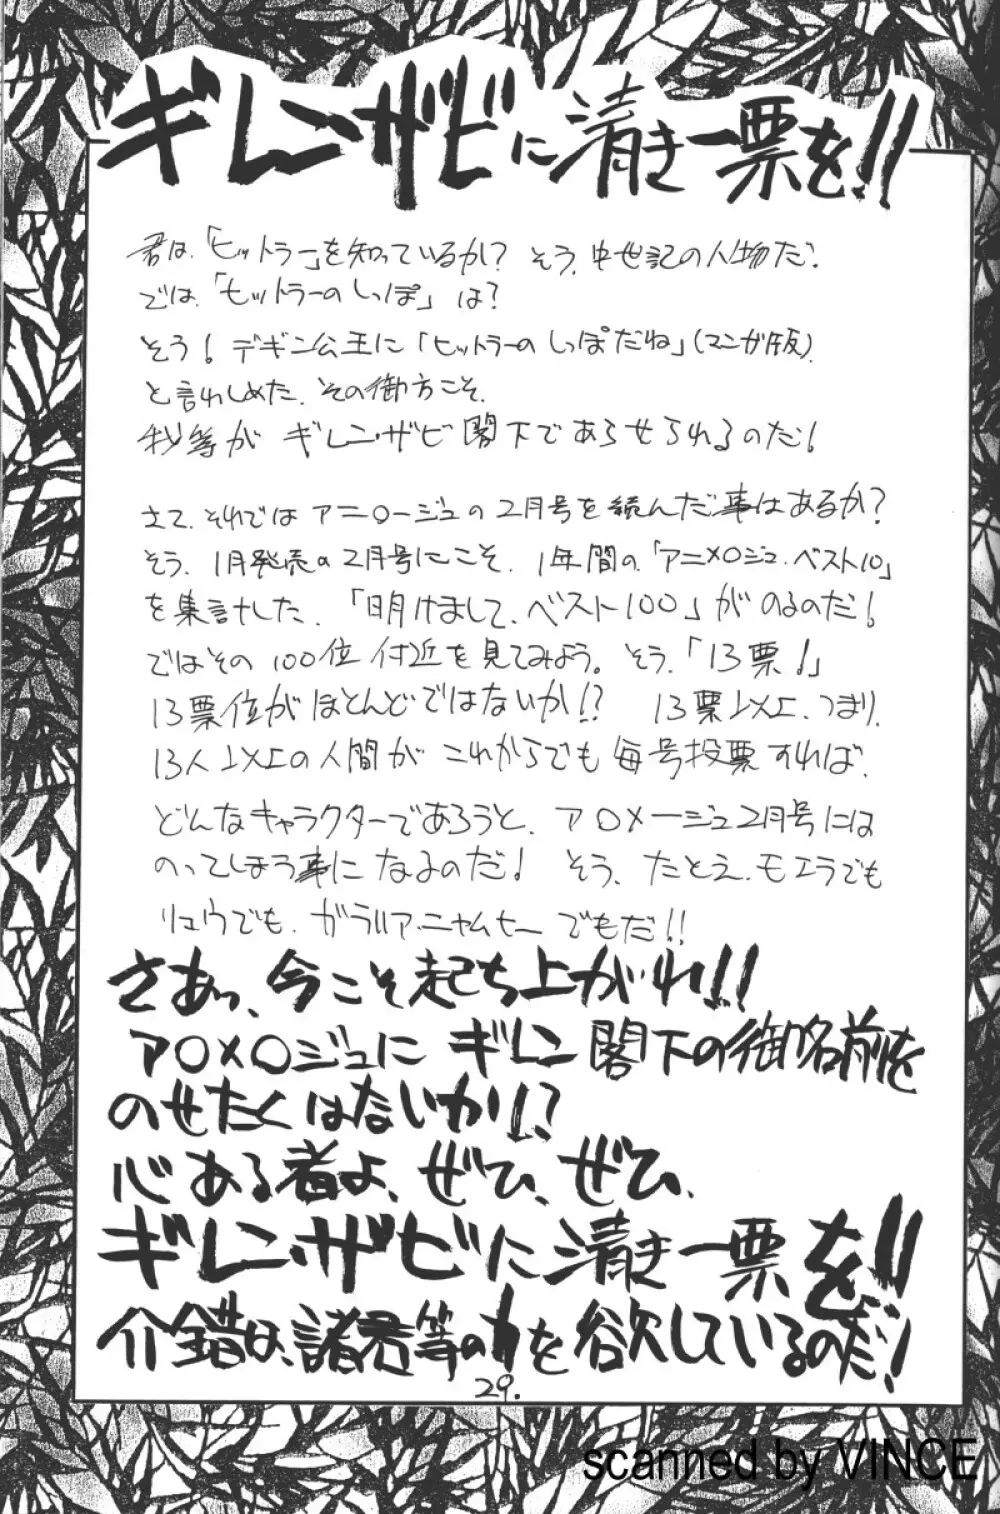 ギレン・ザビに清き一票を!!
君は、「ヒットラー」を知っているか? そう、中世記の人物だ。
では、「ヒットラーのしっぽ」は?
そう! デギン公王に「ヒットラーのしっぽだね」(マンガ版)
と言わしめた、その御方こそ、
我等が ギレン・ザビ 閣下であらせられるのだ!
さて、それでは アニ〇ージュの2月号を読んだ事はあるか?
そう、1月発売の2月号にこそ、1年間の「アニメ〇ジュ・ベスト10」
を集計した、「明けまして、ベスト100」がのるのだ!
ではその 100位 付近を見てみよう。そう、「13票!」
13票位がほとんどではないか!? 13票以上、つまり、
13人以上の人間が これからでも 毎号投票すれば、
どんなキャラクターであろうと、ア〇メージュ2月号には
のってしまう事に なるのだ! そう、たとえ、モエラでも
リュウでも、ガラリア・ニャムヒー でもだ!!
さあっ、今こそ起ち上がれ!!
ア〇メ〇ジュに ギレン 閣下の御名前を
のせたくはないか!?
心ある者よ、ぜひ、ぜひ、
ギレン・ザビに清き一票を!!
介錯は、諸君等の力を欲しているのだ!
29.
scanned by VINCE